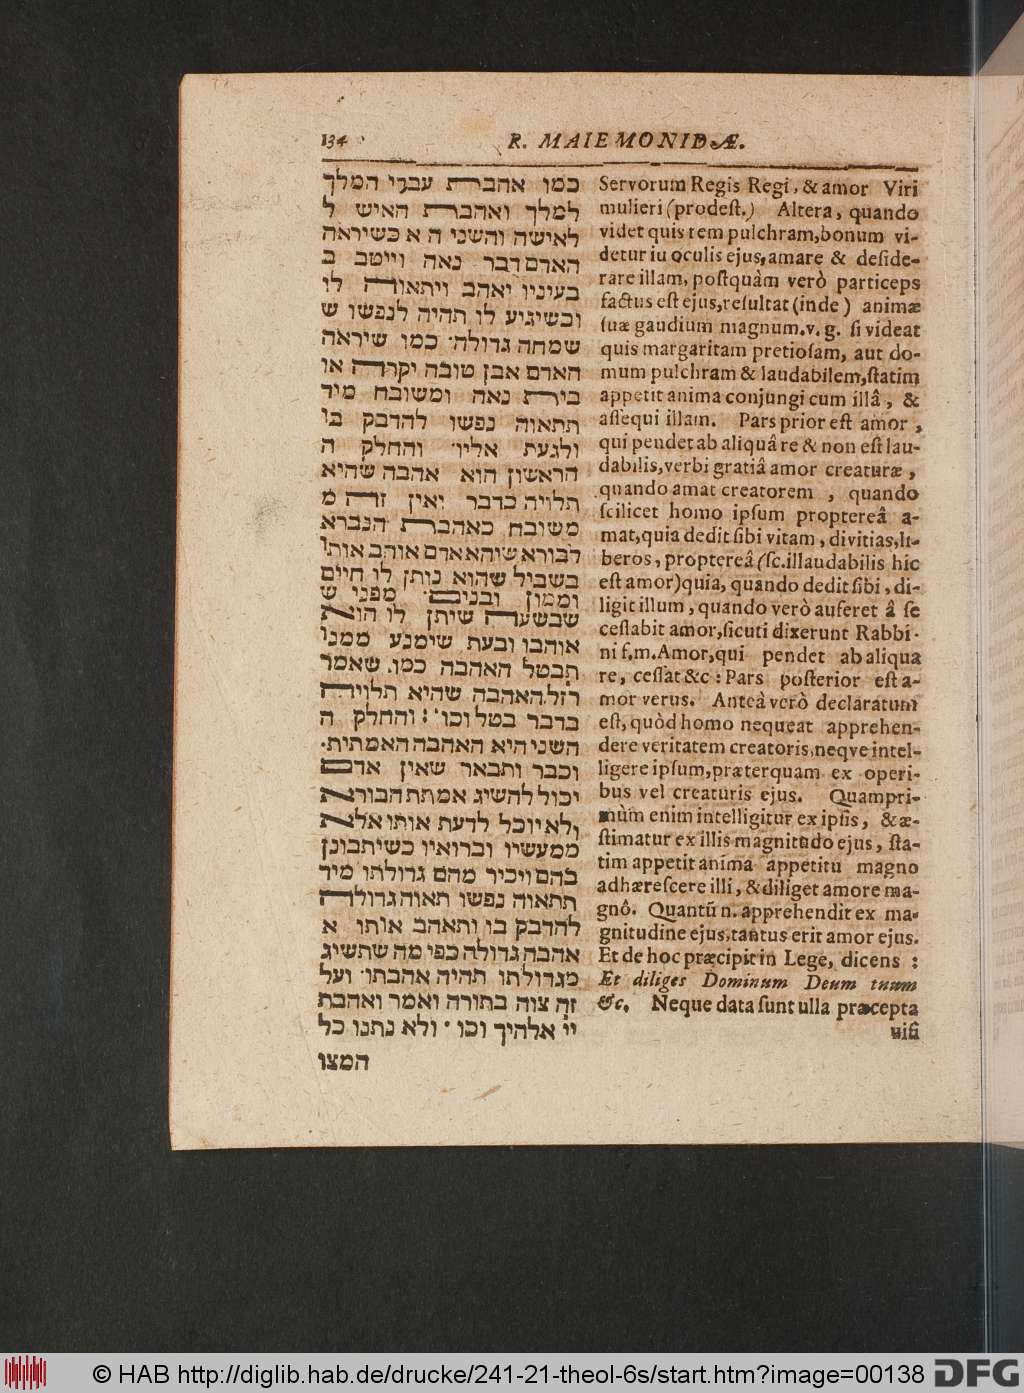 134
R. MAIEMONIDÆ.
כמו אהבת עבדי המלך
למלך ואהבת האיש ל
לאישה והשני ה א כשיראה
האדם דבר נאה וייטב ב
בעיניו יאהב ויתאוה לו
וכשיגיע לו תהיה לנפשו ש
שמחה גדולה׳ כמו שיראה
האדם אבן טובה יקרה או
בית נאה ומשובח מיד
תתאוה נפשו להדבק בו
ולגעת אליו׳ והחלק ה
הראשון הוא אהבה שהיא
תלויה בדבר ואין זה מ
משובח כאהבת הנברא
לבורא שיהא אדם אוהב אותו
בשביל שהוא נותן לו חיים
וממון ובנים׳ מפני ש
שבשעה שיתן לו הוא
אוהבו ובעת שימנע ממנו
תבטל האהבה כמו׳ שאמר
רזל האהבה שהיא תלויה
בדבר בטל וכו׳ : והחלק ה
השני היא האהבה האמתית׳
וכבר ותבאר שאין אדם
יכול להשיג אמתת הבורא
ולא יוכל לדעת אותו אלא
ממעשיו וברואיו כשיתבונן
בהם ויכיר מהם גדולתו מיד
תתאוה נפשו תאוה גדולה
להדבק בו ותאהב אותו א
אהבה גדולה כפי מה שתשיג
מגדולתו תהיה אהבתו׳ ועל
זה צוה בתורה ואמר ואהבת
יי׳ אלהיך וכו׳ ולא נתנו כל
המצו
Servorum Regis Regi, & amor Viri
mulieri (prodest.) Altera, quando
videt quis rem pulchram, bonum vi-
detur iu oculis ejus, amare & deside-
rare illam, postquàm verò particeps
factus est ejus, resultat (inde) animæ
suæ gaudium magnum. v. g. si videat
quis margaritam pretiosam, aut do-
mum pulchram & laudabilem, statim
appetit anima conjungi cum illâ, &
assequi illam. Pars prior est amor,
qui pendet ab aliquâ re & non est lau-
dabilis, verbi gratiâ amor creaturæ,
quando amat creatorem, quando
scilicet homo ipsum propterea a-
mat, quia dedit sibi vitam, divitias, li-
beros, propterea (sc. illaudabilis hic
est amor) quia, quando dedit sibi, di-
ligit illum, quando verò auferet â se
cessabit amor, sicuti dixerunt Rabbi-
ni f, m. Amor, qui pendet ab aliqua
re, cessat &c: Pars posterior est a-
mor verus. Anteà verò declaratum
est, quòd homo nequeat apprehen-
dere veritatem creatoris, neqve intel-
ligere ipsum, præterquam ex operi-
bus vel creaturis ejus. Quampri-
mùm enim intelligitur ex ipsis, & æ-
stimatur ex illis magnitudo ejus, sta-
tim appetit anima appetitu magno
adhærescere illi, & diliget amore ma-
gnô. Quantũ n. apprehendit ex ma-
gnitudine ejus, tantus erit amor ejus.
Et de hoc præcipit in Lege, dicens :
Et diliges Dominum Deum tuum
&c. Neque data sunt ulla præcepta
nisi
© HAB http://diglib.hab.de/drucke/241-21-theol-6s/start.htm?image=00138
DFG